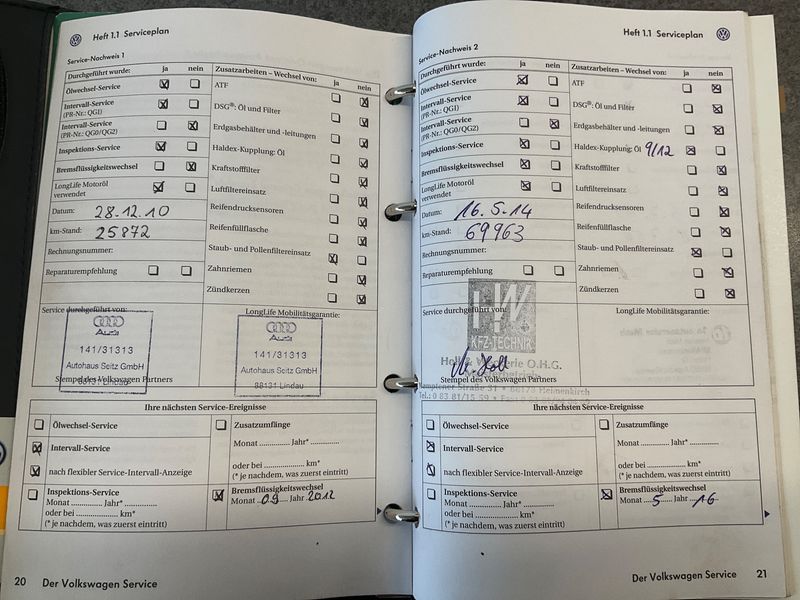 Heft 1.1 Serviceplan
Service-Nachweis 1
Durchgeführt wurde: ja nein
Ölwechsel-Service
Intervall-Service
(PR-Nr.: QG1)
Intervall-Service
(PR-Nr.: QG0/QG2)
Inspektions-Service
Bremsflüssigkeitswechsel
LongLife Motoröl
verwendet
Datum: 28.12.10
km-Stand: 25872
Rechnungsnummer:
Reparaturempfehlung
Zusatzarbeiten – Wechsel von: ja nein
ATF
DSG®: Öl und Filter
Erdgasbehälter und -leitungen
Haldex-Kupplung: Öl
Kraftstofffilter
Luftfiltereinsatz
Reifendrucksensoren
Reifenfüllflasche
Staub- und Pollenfiltereinsatz
Zahnriemen
Zündkerzen
Service durchgeführt von:
Audi
141/31313
Autohaus Seitz GmbH
88131 Lindau
Stempel des Volkswagen Partners
LongLife Mobilitätsgarantie:
Audi
141/31313
Autohaus Seitz GmbH
88131 Lindau
Ihre nächsten Service-Ereignisse
Ölwechsel-Service
Intervall-Service
nach flexibler Service-Intervall-Anzeige
Inspektions-Service
Monat ............. Jahr* .............
oder bei .................. km*
(* je nachdem, was zuerst eintritt)
Zusatzumfänge
Monat ............. Jahr* .............
oder bei .................. km*
(* je nachdem, was zuerst eintritt)
Bremsflüssigkeitswechsel
Monat 09 Jahr 2012
20 Der Volkswagen Service
Heft 1.1 Serviceplan
Service-Nachweis 2
Durchgeführt wurde: ja nein
Ölwechsel-Service
Intervall-Service
(PR-Nr.: QG1)
Intervall-Service
(PR-Nr.: QG0/QG2)
Inspektions-Service
Bremsflüssigkeitswechsel
LongLife Motoröl
verwendet
Datum: 16.5.14
km-Stand: 69963
Rechnungsnummer:
Reparaturempfehlung
Zusatzarbeiten – Wechsel von: ja nein
ATF
DSG®: Öl und Filter
Erdgasbehälter und -leitungen
Haldex-Kupplung: Öl 9/12
Kraftstofffilter
Luftfiltereinsatz
Reifendrucksensoren
Reifenfüllflasche
Staub- und Pollenfiltereinsatz
Zahnriemen
Zündkerzen
Service durchgeführt von:
HW
KFZ-TECHNIK
O.H.G.
Straße 31 88178 Heimenkirch
Tel.: 0 83 81/15 59
Stempel des Volkswagen Partners
LongLife Mobilitätsgarantie:
Ihre nächsten Service-Ereignisse
Ölwechsel-Service
Intervall-Service
nach flexibler Service-Intervall-Anzeige
Inspektions-Service
Monat ............. Jahr* .............
oder bei .................. km*
(* je nachdem, was zuerst eintritt)
Zusatzumfänge
Monat ............. Jahr* .............
oder bei .................. km*
(* je nachdem, was zuerst eintritt)
Bremsflüssigkeitswechsel
Monat 5 Jahr 16
Der Volkswagen Service 21